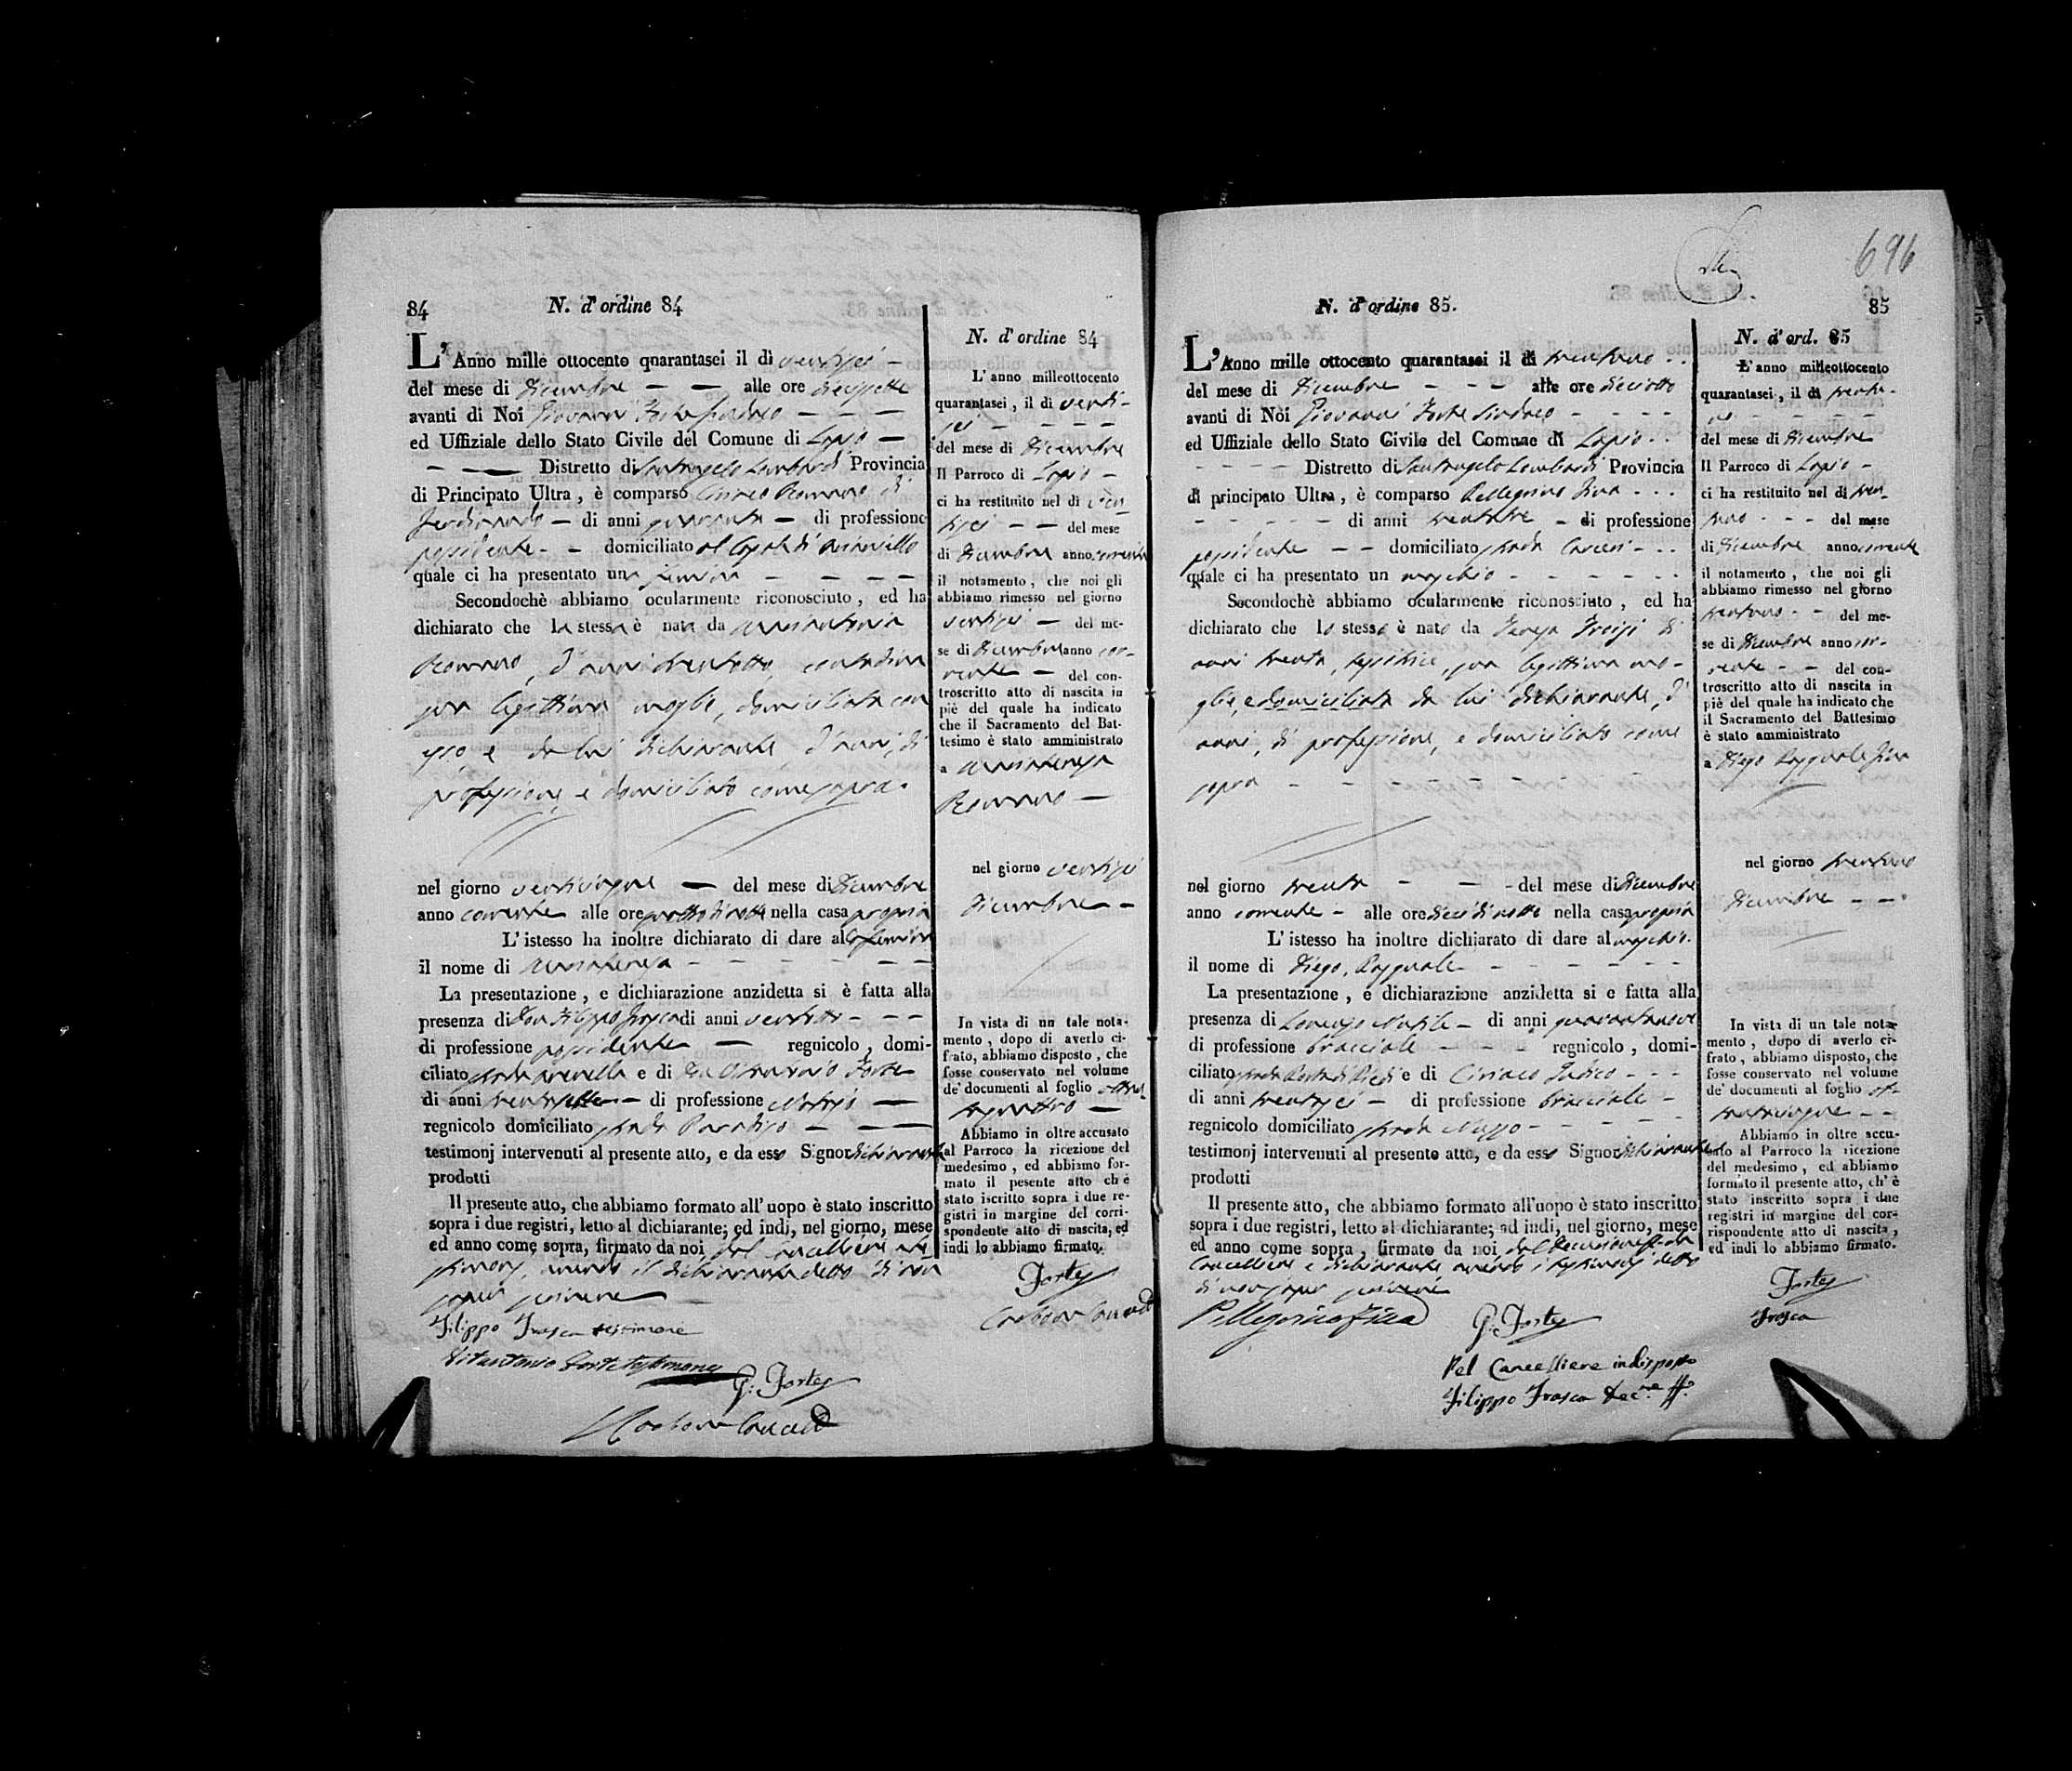 84 N. d'ordine 84
L'Anno mille ottocento quarantasei il di ventisei
del mese di Dicembre alle ore diecissette
avanti di Noi Giovanni Forte Sindaco
ed Uffiziale dello Stato Civile del Comune di Lapio
Distretto di Santangelo Lombardi Provincia
di Principato Ultra, è comparso Romano di
Ferdinando di anni quaranta di professione
possidente domiciliato al
quale ci ha presentato una femina
Secondochè abbiamo ocularmente riconosciuto, ed ha
dichiarato che la stessa è nata da
Romano, d'anni trentotto, contadina
sua legittima moglie, domiciliata con
esso, e da lui dichiarante d'anni, di
professione, e domiciliato come sopra.
nel giorno venticinque del mese di Dicembre
anno corrente alle ore quattro di notte nella casa propria
L'istesso ha inoltre dichiarato di dare alla femina
il nome di
La presentazione, e dichiarazione anzidetta si è fatta alla
presenza di Don Filippo Frosca di anni ventotto
di professione possidente regnicolo, domi-
ciliato strada e di Forte
di anni di professione Notajo
regnicolo domiciliato strada Paradiso
testimonj intervenuti al presente atto, e da esso Signor dichiarante
prodotti
Il presente atto, che abbiamo formato all'uopo è stato inscritto
sopra i due registri, letto al dichiarante; ed indi, nel giorno, mese
ed anno come sopra, firmato da noi, dal Cancelliere e te-
stimonj, avendo il dichiarante detto di non
saper scrivere
Filippo Frosca testimone
Vitantonio Forte testimone
G: Forte
N. d'ordine 84
L'anno milleottocento
quarantasei, il di venti-
sei
del mese di Dicembre
Il Parroco di Lapio
ci ha restituito nel di ven-
tisei del mese
di Dicembre anno corrente
il notamento, che noi gli
abbiamo rimesso nel giorno
ventisei del me-
se di Dicembre anno cor-
rente del con-
troscritto atto di nascita in
piè del quale ha indicato
che il Sacramento del Bat-
tesimo è stato amministrato
a
Romano
nel giorno ventisei
Dicembre
In vista di un tale nota-
mento, dopo di averlo ci-
frato, abbiamo disposto, che
fosse conservato nel volume
de' documenti al foglio ottan-
taquattro
Abbiamo in oltre accusato
al Parroco la ricezione del
medesimo, ed abbiamo for-
mato il pesente atto ch'è
stato iscritto sopra i due re-
gistri in margine del corri-
spondente atto di nascita, ed
indi lo abbiamo firmato.
Forte
696
N. d'ordine 85. 85
L'Anno mille ottocento quarantasei il di trentuno
del mese di Dicembre alle ore dieciotto
avanti di Noi Giovanni Forte Sindaco
ed Uffiziale dello Stato Civile del Comune di Lapio
Distretto di Santangelo Lombardi Provincia
di principato Ultra, è comparso Pellegrino Zina
di anni trentatre di professione
possidente domiciliato strada Carceri
quale ci ha presentato un maschio
Secondochè abbiamo ocularmente riconosciuto, ed ha
dichiarato che lo stesso è nato da Teresa di
anni trenta, sua legittima mo-
glie, e domiciliata da lui dichiarante, d'
anni, di professione, e domiciliato come
sopra
nel giorno trenta del mese di Dicembre
anno corrente alle ore dieci di notte nella casa propria
L'istesso ha inoltre dichiarato di dare al maschio
il nome di Diego, Pasquale
La presentazione, e dichiarazione anzidetta si e fatta alla
presenza di Lorenzo di anni quarantanove
di professione bracciale regnicolo, domi-
ciliato strada e di Ciriaco
di anni trentasei di professione bracciale
regnicolo domiciliato strada
testimonj intervenuti al presente atto, e da esso Signor dichiarante
prodotti
Il presente atto, che abbiamo formato all'uopo è stato inscritto
sopra i due registri, letto al dichiarante; ad indi, nel giorno, mese
ed anno come sopra, firmato da noi, dal da
Cancelliere e dichiarante avendo i testimonj detto
di non saper scrivere
Pellegrino Zina
G: Forte
Pel Cancelliere indisposto
Filippo Frosca
N. d'ord. 85
L'anno milleottocento
quarantasei, il di
del mese di Dicembre
Il Parroco di Lapio
ci ha restituito nel di tren-
tuno del mese
di Dicembre anno corrente
il notamento, che noi gli
abbiamo rimesso nel giorno
trentuno del me-
se di Dicembre anno cor-
rente del con-
troscritto atto di nascita in
piè del quale ha indicato che
il Sacramento del Battesimo
è stato amministrato
a Diego Pasquale Zina
nel giorno trentuno
Dicembre
In vista di un tale nota-
mento, dopo di averlo ci-
frato, abbiamo disposto, che
fosse conservato nel volume
de' documenti al foglio ot-
tantacinque
Abbiamo in oltre accu-
sato al Parroco la ricezione
del medesimo, ed abbiamo
formato il presente atto, ch'è
stato inscritto sopra i due
registri in margine del cor-
rispondente atto di nascita,
ed indi lo abbiamo firmato.
Forte
Frosca